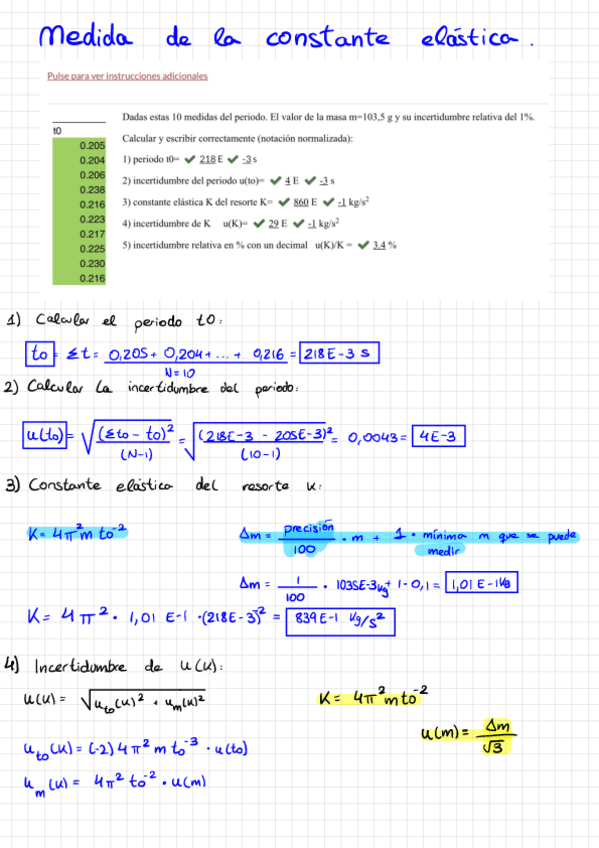 Medida de la constante elástica.
Pulse para ver instrucciones adicionales
t0
0.205
0.204
0.206
0.238
0.216
0.223
0.217
0.225
0.230
0.216
Dadas estas 10 medidas del periodo. El valor de la masa m=103,5 g y su incertidumbre relativa del 1%.
Calcular y escribir correctamente (notación normalizada):
1) periodo t0= ✔ 218 E ✔ -3 s
2) incertidumbre del periodo u(to)= ✔ 4 E ✔ -3 s
3) constante elástica K del resorte K= ✔ 860 E ✔ -1 kg/s²
4) incertidumbre de K u(K)= ✔ 29 E ✔ -1 kg/s²
5) incertidumbre relativa en % con un decimal u(K)/K = ✔ 3.4 %
1) Calcular el periodo t0:
to = Σt = 0,205 + 0,204 + ... + 0,216 / N=10 = 218E-3 s
2) Calcular la incertidumbre del periodo:
u(to) = √((Σto - to)² / (N-1)) = √((218E-3 - 205E-3)² / (10-1)) = 0,0043 = 4E-3
3) Constante elástica del resorte K:
K = 4π² m to⁻²
Δm = precisión / 100 · m + 1 · mínima m que se puede medir
Δm = 1 / 100 · 1035E-3 kg + 1 · 0,1 = 1,01 E-1 kg
K = 4π² · 1,01 E-1 · (218E-3)⁻² = 839E-1 kg/s²
4) Incertidumbre de u(k):
u(k) = √(u_to(k)² + u_m(k)²)
K = 4π² m to⁻²
u(m) = Δm / √3
u_to(k) = (-2) 4π² m to⁻³ · u(to)
u_m(k) = 4π² to⁻² · u(m)